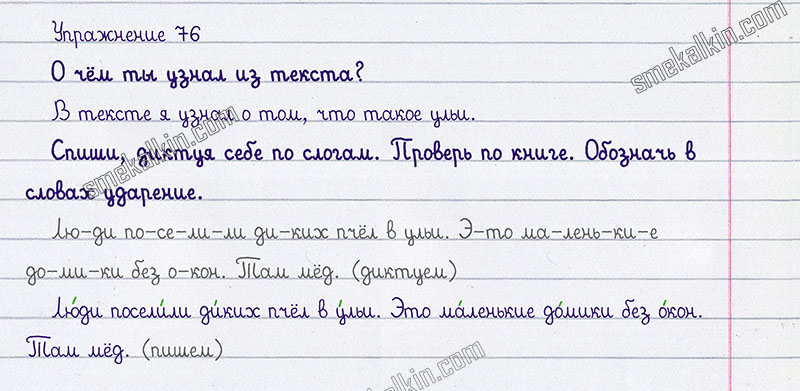 Упражнение 76
О чём ты узнал из текста?
В тексте я узнал о том, что такое ульи.
Спиши, диктуя себе по слогам. Проверь по книге. Обозначь в
словах ударение.
Лю-ди по-се-ли-ли ди-ких пчёл в ульи. Э-то ма-лень-ки-е
до-ми-ки без о-кон. Там мёд. (диктуем)
Лю́ди посели́ли ди́ких пчёл в у́льи. Это ма́ленькие до́мики без о́кон.
Там мёд. (пишем)
smekalkin.com
smekalkin.com
smekalkin.com
smekalkin.com